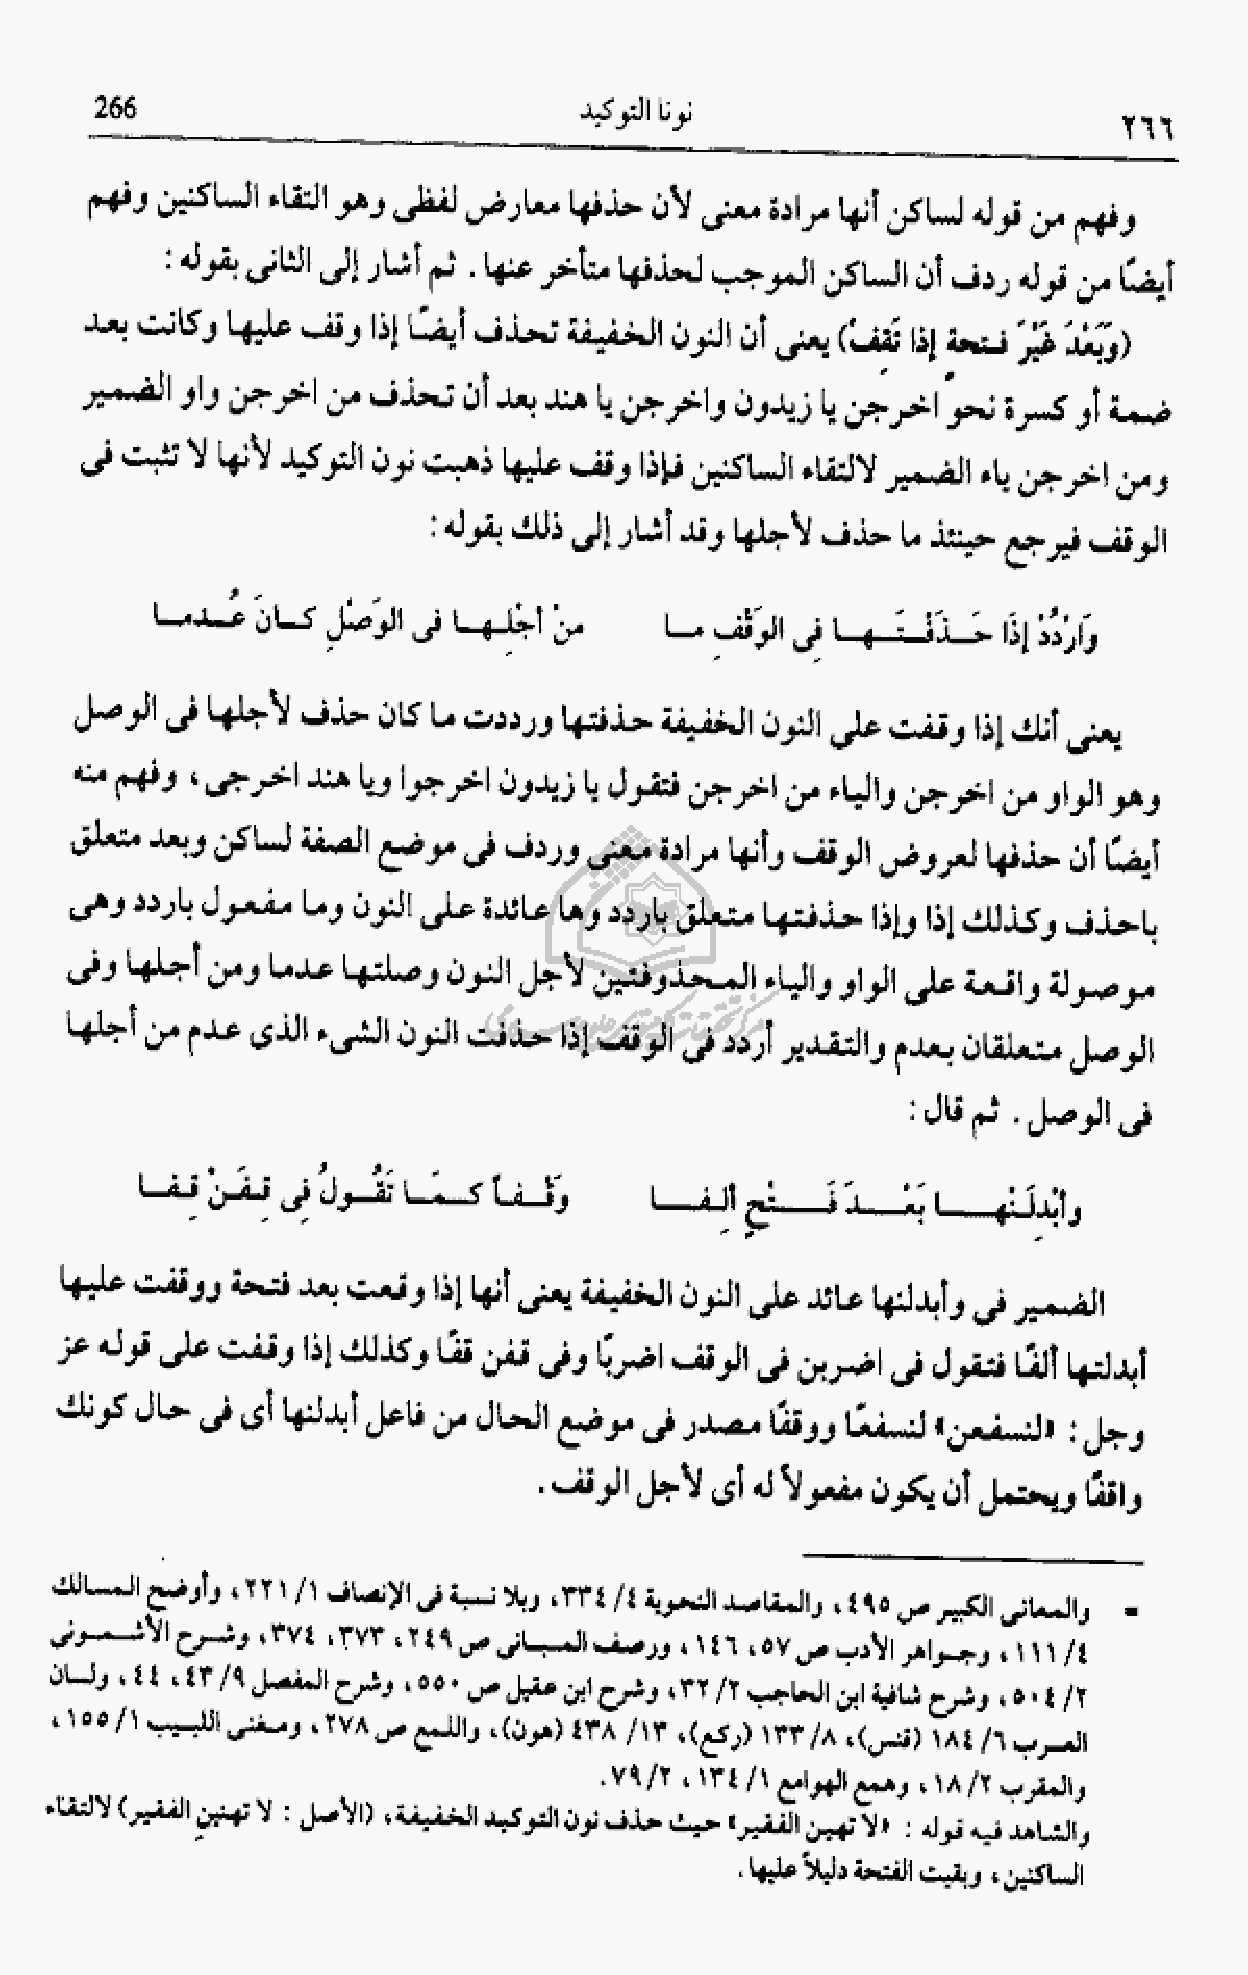 ٢٦٦ نونا التوكيد 266
وفهم من قوله لساكن أنها مرادة معنى لأن حذفها معارض لفظى وهو التقاء الساكنين وفهم
أيضًا من قوله ردف أن الساكن الموجب لحذفها متأخر عنها . ثم أشار إلى الثانى بقوله :
(وَبَعْدَ غَيْرَ فتحة إذا تَقِفْ) يعنى أن النون الخفيفة تحذف أيضًا إذا وقف عليها وكانت بعد
ضمة أو كسرة نحو اخرجن يا زيدون واخرجن يا هند بعد أن تحذف من اخرجن واو الضمير
ومن اخرجن ياء الضمير لالتقاء الساكنين فإذا وقف عليها ذهبت نون التوكيد لأنها لا تثبت فى
الوقف فيرجع حينئذ ما حذف لأجلها وقد أشار إلى ذلك بقوله :
وَارْدُدْ إذَا حَذَفْتَهَا فِى الوَقْفِ مَا مِنْ أجْلِهَا فى الوَصْلِ كَانَ عُدمَا
يعنى أنك إذا وقفت على النون الخفيفة حذفتها ورددت ما كان حذف لأجلها فى الوصل
وهو الواو من اخرجن والياء من اخرجن فتقول يا زيدون اخرجوا ويا هند اخرجى ، وفهم منه
أيضًا أن حذفها لعروض الوقف وأنها مرادة معنى وردف فى موضع الصفة لساكن وبعد متعلق
باحذف وكذلك إذا وإذا حذفتها متعلق باردد وها عائدة على النون وما مفعول باردد وهى
موصولة واقعة على الواو والياء المحذوفتين لأجل النون وصلتها عدما ومن أجلها وفى
الوصل متعلقان بعدم والتقدير أردد فى الوقف إذا حذفت النون الشىء الذى عدم من أجلها
فى الوصل . ثم قال :
وأبْدِلَنْهَا بَعْدَ فَتْحٍ ألِفَا وَقْفاً كَمَا تَقُولُ فِى قِفَنْ قِفَا
الضمير فى وأبدلنها عائد على النون الخفيفة يعنى أنها إذا وقعت بعد فتحة ووقفت عليها
أبدلتها ألفًا فتقول فى اضربن فى الوقف اضربًا وفى قفن قفًا وكذلك إذا وقفت على قوله عز
وجل : «لنسفعن» لنسفعًا ووقفًا مصدر فى موضع الحال من فاعل أبدلنها أى فى حال كونك
واقفًا ويحتمل أن يكون مفعولاً له أى لأجل الوقف .
= والمعانى الكبير ص ٤٩٥ ، والمقاصد النحوية ٤/ ٣٣٤ ، وبلا نسبة فى الإنصاف ١/ ٢٢١ ، وأوضح المسالك
٤/ ١١١ ، وجواهر الأدب ص ٥٧ ، ١٤٦ ، ورصف المبانى ص ٢٤٩ ، ٣٧٣ ، ٣٧٤ ، وشرح الأشمونى
٢/ ٥٠٤ ، وشرح شافية ابن الحاجب ٢/ ٣٢ ، وشرح ابن عقيل ص ٥٥٠ ، وشرح المفصل ٩/ ٤٣ ، ٤٤ ، ولسان
العرب ٦/ ١٨٤ (قنس) ، ٨/ ١٣٣ (ركع) ، ١٣/ ٤٣٨ (هون) ، واللمع ص ٢٧٨ ، ومغنى اللبيب ١/ ١٥٥ ،
والمقرب ٢/ ١٨ ، وهمع الهوامع ١/ ١٣٤ ، ٢/ ٧٩ .
والشاهد فيه قوله : «لا تهين الفقير» حيث حذف نون التوكيد الخفيفة ، (الأصل : لا تهنِين الفقير) لالتقاء
الساكنين ، وبقيت الفتحة دليلاً عليها .